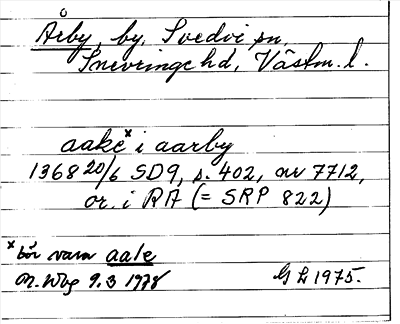 Årby, by, Svedvi sn,
Snevringe hd, Västm. l.
aake× i aarby
1368 20/6 SD9, s. 402, nr 7712,
or. i RA (= SRP 822)
× bör vara aale
M. Wbg 9.3 1978
G L 1975.